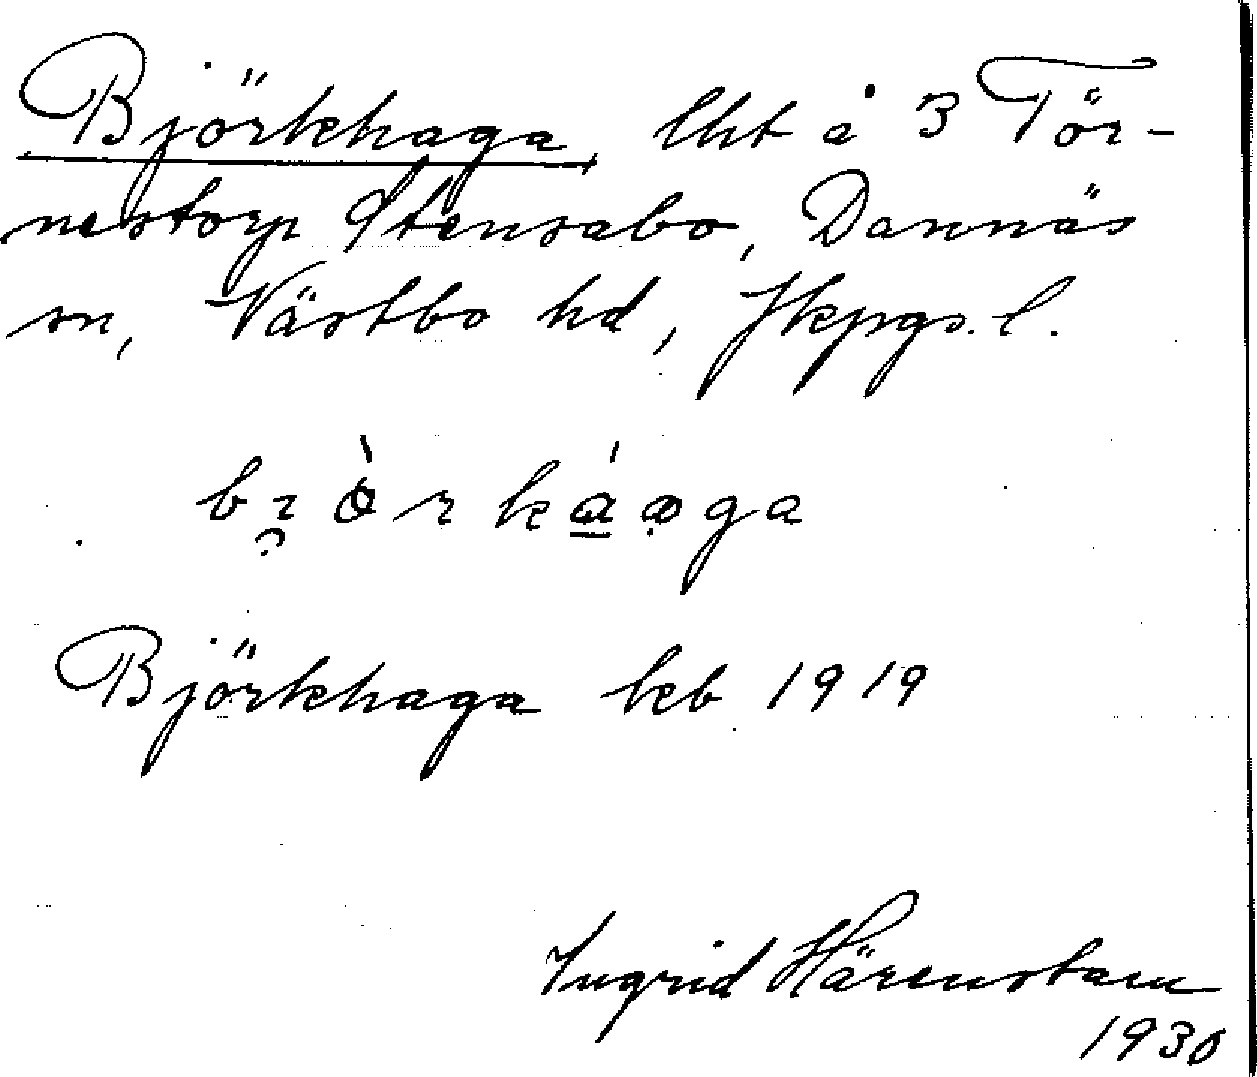 Björkhaga, lht å 3 Tör-
nestorp Stensabo, Dannäs
sn, Västbo hd, Jkpgs. l.
Björkhaga keb 1919
Ingrid Härenstam
1930